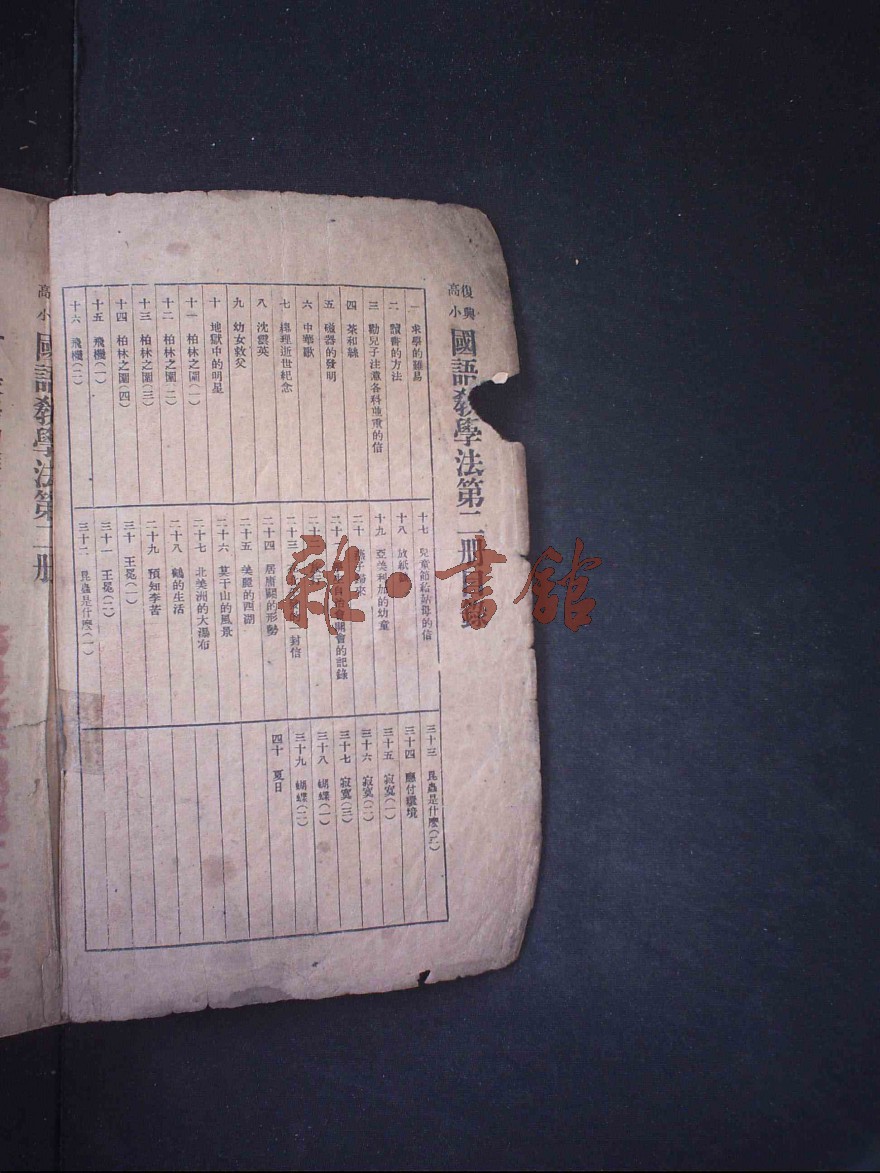 復興
高小
國語教學法第二册目錄
一 求學的難易
二 讀書的方法
三 勸兒子注意各科並重的信
四 茶和絲
五 磁器的發明
六 中華歌
七 總理逝世紀念
八 沈雲英
九 幼女救父
十 地獄中的明星
十一 柏林之圍(一)
十二 柏林之圍(二)
十三 柏林之圍(三)
十四 柏林之圍(四)
十五 飛機(一)
十六 飛機(二)
十七 兒童節給姑母的信
十八 放紙
十九 亞美利加的幼童
二十 燕子歸來
二十 自治會開會的記錄
二十二
二十三 一封信
二十四 居庸關的形勢
二十五 美麗的西湖
二十六 莫干山的風景
二十七 北美洲的大瀑布
二十八 鶴的生活
二十九 預知李苦
三十 王冕(一)
三十一 王冕(二)
三十二 昆蟲是什麼(一)
三十三 昆蟲是什麼(二)
三十四 應付環境
三十五 寂寞(一)
三十六 寂寞(二)
三十七 寂寞(三)
三十八 蝴蝶(一)
三十九 蝴蝶(二)
四十 夏日
高小
國語教學法第二册
雜·書館